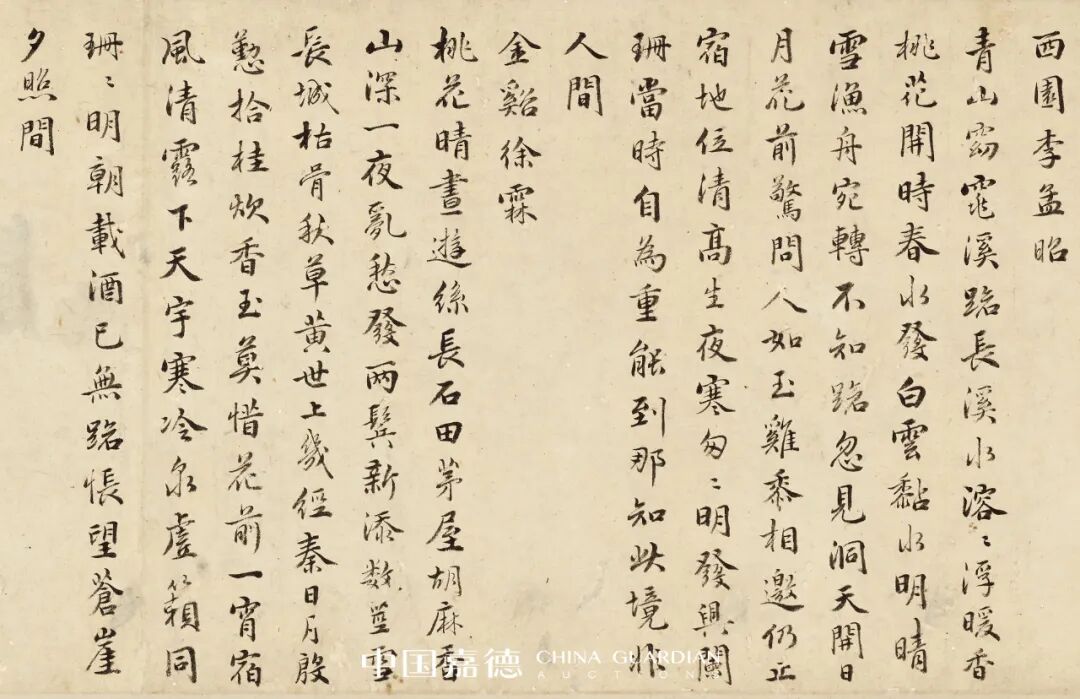 西園李孟昭
青山窈窕溪路長溪水溶〻浮暖香
桃花開時春水發白雲黏水明晴
雪漁舟宛轉不知路忽見洞天開日
月花前驚問人如玉雞黍相邀仍止
宿地位清高生夜寒匆〻明發興闌
珊當時自為重能到那知此境非
人間
金谿徐霖
桃花晴晝遊絲長石田茅屋胡麻香
山深一夜亂愁發兩鬢新添數莖雪
長城枯骨秋草黃世上幾經秦日月殷
懃拾桂炊香玉莫惜花前一宵宿
風清露下天宇寒冷泉虛籟同
珊〻明朝載酒已無路悵望蒼崖
夕照間
中国嘉德 CHINA GUARDIAN
AUCTIONS